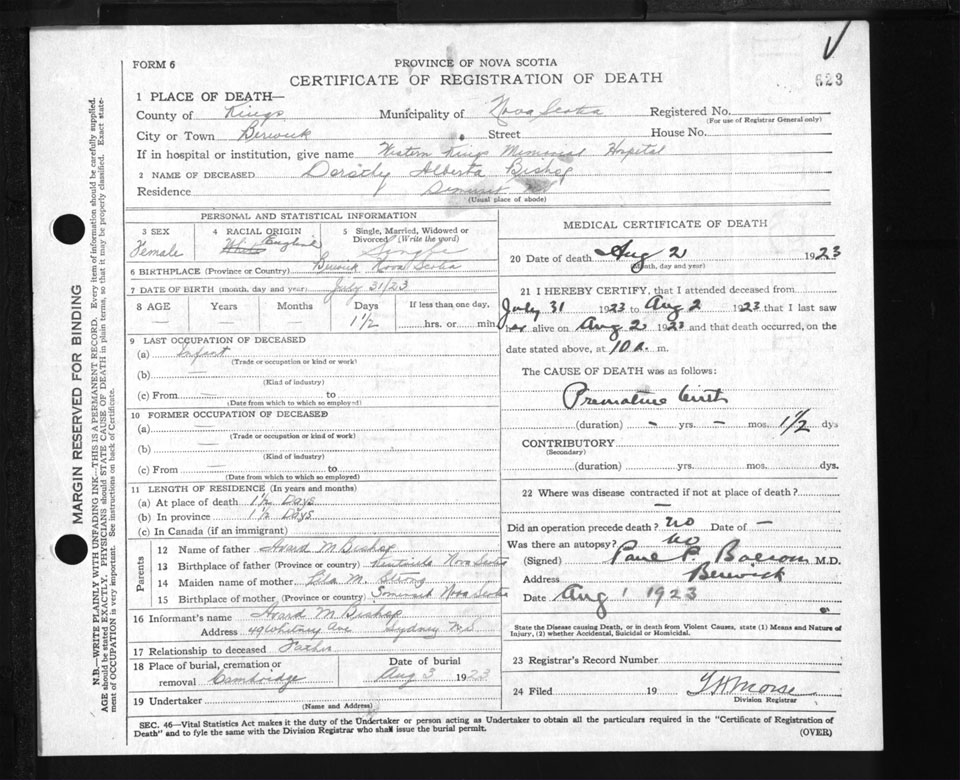 FORM 6
PROVINCE OF NOVA SCOTIA
CERTIFICATE OF REGISTRATION OF DEATH
623
1 PLACE OF DEATH—
County of Kings Municipality of Nova Scotia Registered No.
(For use of Registrar General only)
City or Town Berwick Street House No.
If in hospital or institution, give name Western Kings Memorial Hospital
2 NAME OF DECEASED Dorothy Alberta Bishop
Residence Somerset N.S.
(Usual place of abode)
PERSONAL AND STATISTICAL INFORMATION
3 SEX Female
4 RACIAL ORIGIN White English
5 Single, Married, Widowed or Divorced (Write the word) Single
6 BIRTHPLACE (Province or Country) Berwick Nova Scotia
7 DATE OF BIRTH (month, day and year) July 31/23
8 AGE Years Months Days 1½ If less than one day, hrs. or min.
9 LAST OCCUPATION OF DECEASED
(a) Infant
(Trade or occupation or kind or work)
(b) —
(Kind of industry)
(c) From — to
(Date from which to which so employed)
10 FORMER OCCUPATION OF DECEASED
(a) —
(Trade or occupation or kind of work)
(b) —
(Kind of industry)
(c) From — to
(Date from which to which so employed)
11 LENGTH OF RESIDENCE (In years and months)
(a) At place of death 1½ Days
(b) In province 1½ Days
(c) In Canada (if an immigrant)
Parents
12 Name of father Avard M Bishop
13 Birthplace of father (Province or country) Nova Scotia
14 Maiden name of mother Lila M. Strong
15 Birthplace of mother (Province or country) Somerset Nova Scotia
16 Informant's name Avard M Bishop
Address 49 Whitney Ave Sydney N.S
17 Relationship to deceased Father
18 Place of burial, cremation or removal Cambridge
Date of burial Aug 3 1923
19 Undertaker
(Name and Address)
MEDICAL CERTIFICATE OF DEATH
20 Date of death Aug 2 1923
(Month, day and year)
21 I HEREBY CERTIFY, that I attended deceased from
July 31 1923 to Aug 2 1923 that I last saw
her alive on Aug 2 1923 and that death occurred, on the
date stated above, at 10 a. m.
The CAUSE OF DEATH was as follows:
Premature birth
(duration) – yrs. – mos. 1½ dys
CONTRIBUTORY
(Secondary)
(duration) yrs. mos. dys.
22 Where was disease contracted if not at place of death?
—
Did an operation precede death? No Date of —
Was there an autopsy? No
(Signed) Paul P. M.D.
Address Berwick
Date Aug 1 1923
State the Disease causing Death, or in death from Violent Causes, state (1) Means and Nature of
Injury, (2) whether Accidental, Suicidal or Homicidal.
23 Registrar's Record Number
24 Filed 19 Morse
Division Registrar
SEC. 46—Vital Statistics Act makes it the duty of the Undertaker or person acting as Undertaker to obtain all the particulars required in the "Certificate of Registration of
Death" and to fyle the same with the Division Registrar who shall issue the burial permit.
(OVER)
MARGIN RESERVED FOR BINDING
N.B.—WRITE PLAINLY WITH UNFADING INK—THIS IS A PERMANENT RECORD. Every item of information should be carefully supplied.
AGE should be stated EXACTLY. PHYSICIANS should STATE CAUSE OF DEATH in plain terms, so that it may be properly classified. Exact state-
ment of OCCUPATION is very important. See instructions on back of Certificate.